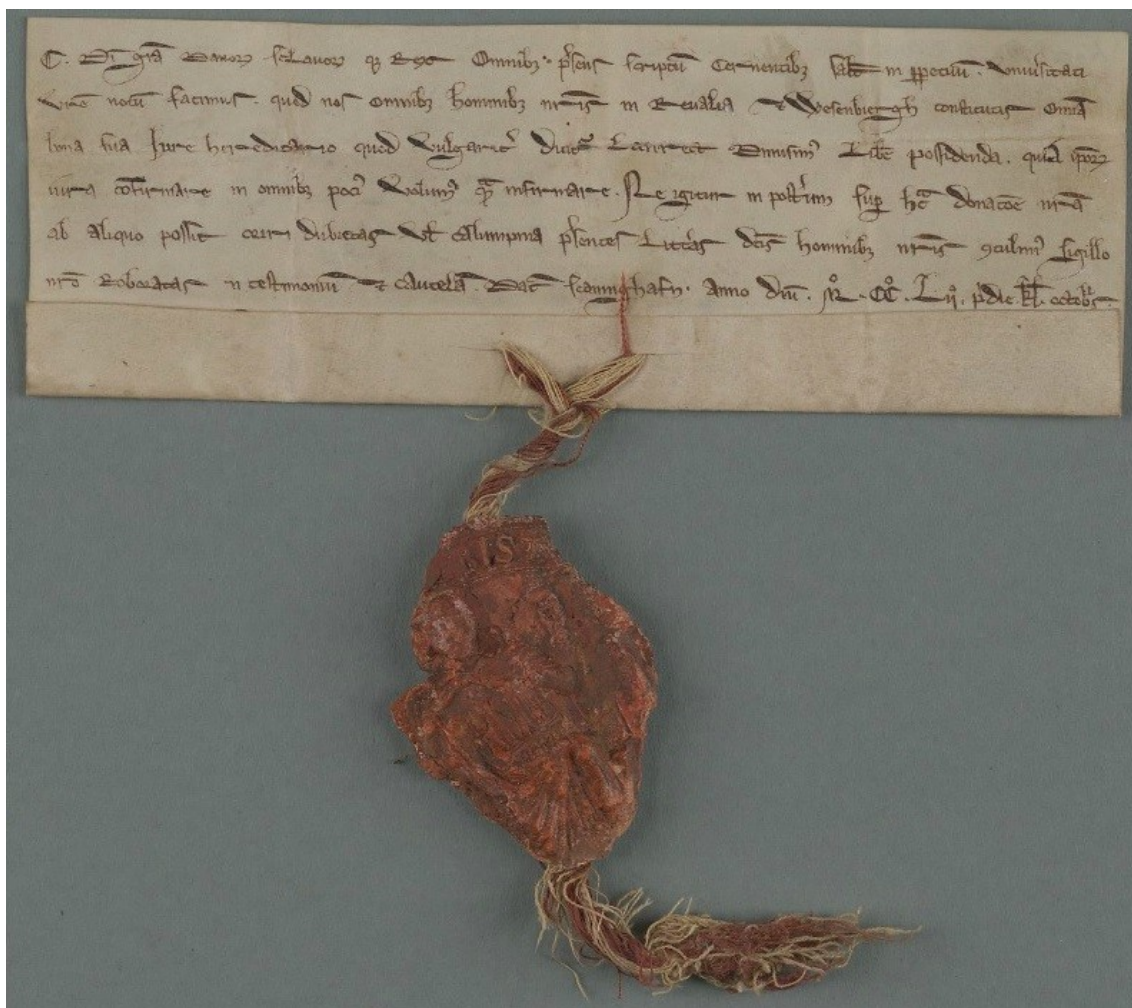 C. Dī grā Danoꝝ sclauoꝝ qꝫ Rex Omnibꝫ p̄sens sc̄ptū Cernentibꝫ salt̄ in ꝑpetuū. Vniu̾sitati
vr̄e notū facimus. quod nos omnibꝫ hominibꝫ nr̄is in Reualia ⁊ Wesenbiergh constitutis Omīa
bona sua Jure hereditario quod vulgarit̾ dicit᷑ Lanreet Dimisim᷒ Libe possidenda. quia ip̄oꝝ
iura cōfirmare in omnibꝫ poci᷒ volum᷒ qᷓ infirmare. Ne igitur in post̾um suꝑ hᷓ donacōe nr̄a
ab aliquo possit oriri dubietas vl̄ calumpnia p̄sentes Litt̾as dc̄is hominibꝫ nr̄is ꝯtulim᷒ sigillo
nr̄o Roboratas in testimoniū ⁊ cautelā. Dat̄ scaninghafn. Anno dn̄i. Mͦ. CCͦ. Lijͦ. p̄die. kl̄. octobr̄.
IS